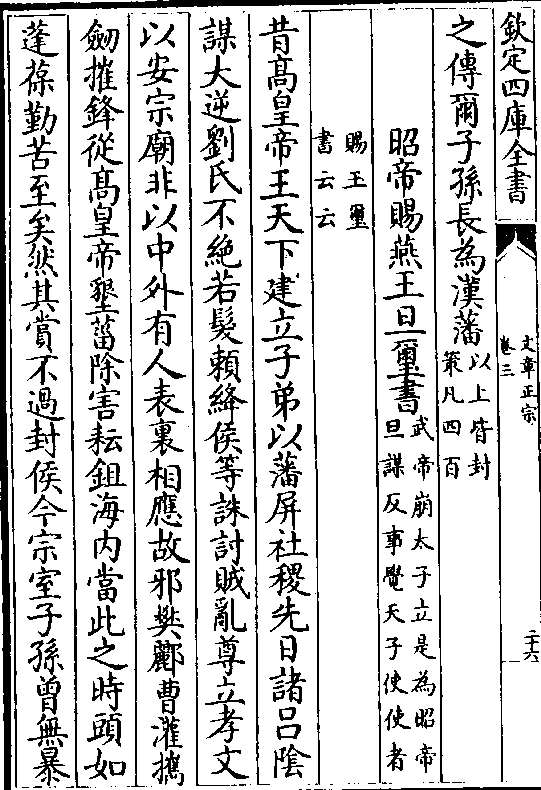 欽定四庫全書
文章正宗
卷三
二十六
之傳爾子孫長為漢藩以上皆封
策凡四百
昭帝賜燕王旦璽書武帝崩太子立是為昭帝
旦謀反事覺天子使使者
賜王璽
書云云
昔髙皇帝王天下建立子弟以藩屏社稷先日諸吕陰
謀大逆劉氏不絶若髮賴絳侯等誅討賊亂尊立孝文
以安宗廟非以中外有人表裏相應故邪樊酈曹灌攜
劒摧鋒從髙皇帝墾菑除害耘鉏海内當此之時頭如
蓬葆勤苦至矣然其賞不過封侯今宗室子孫曽無暴